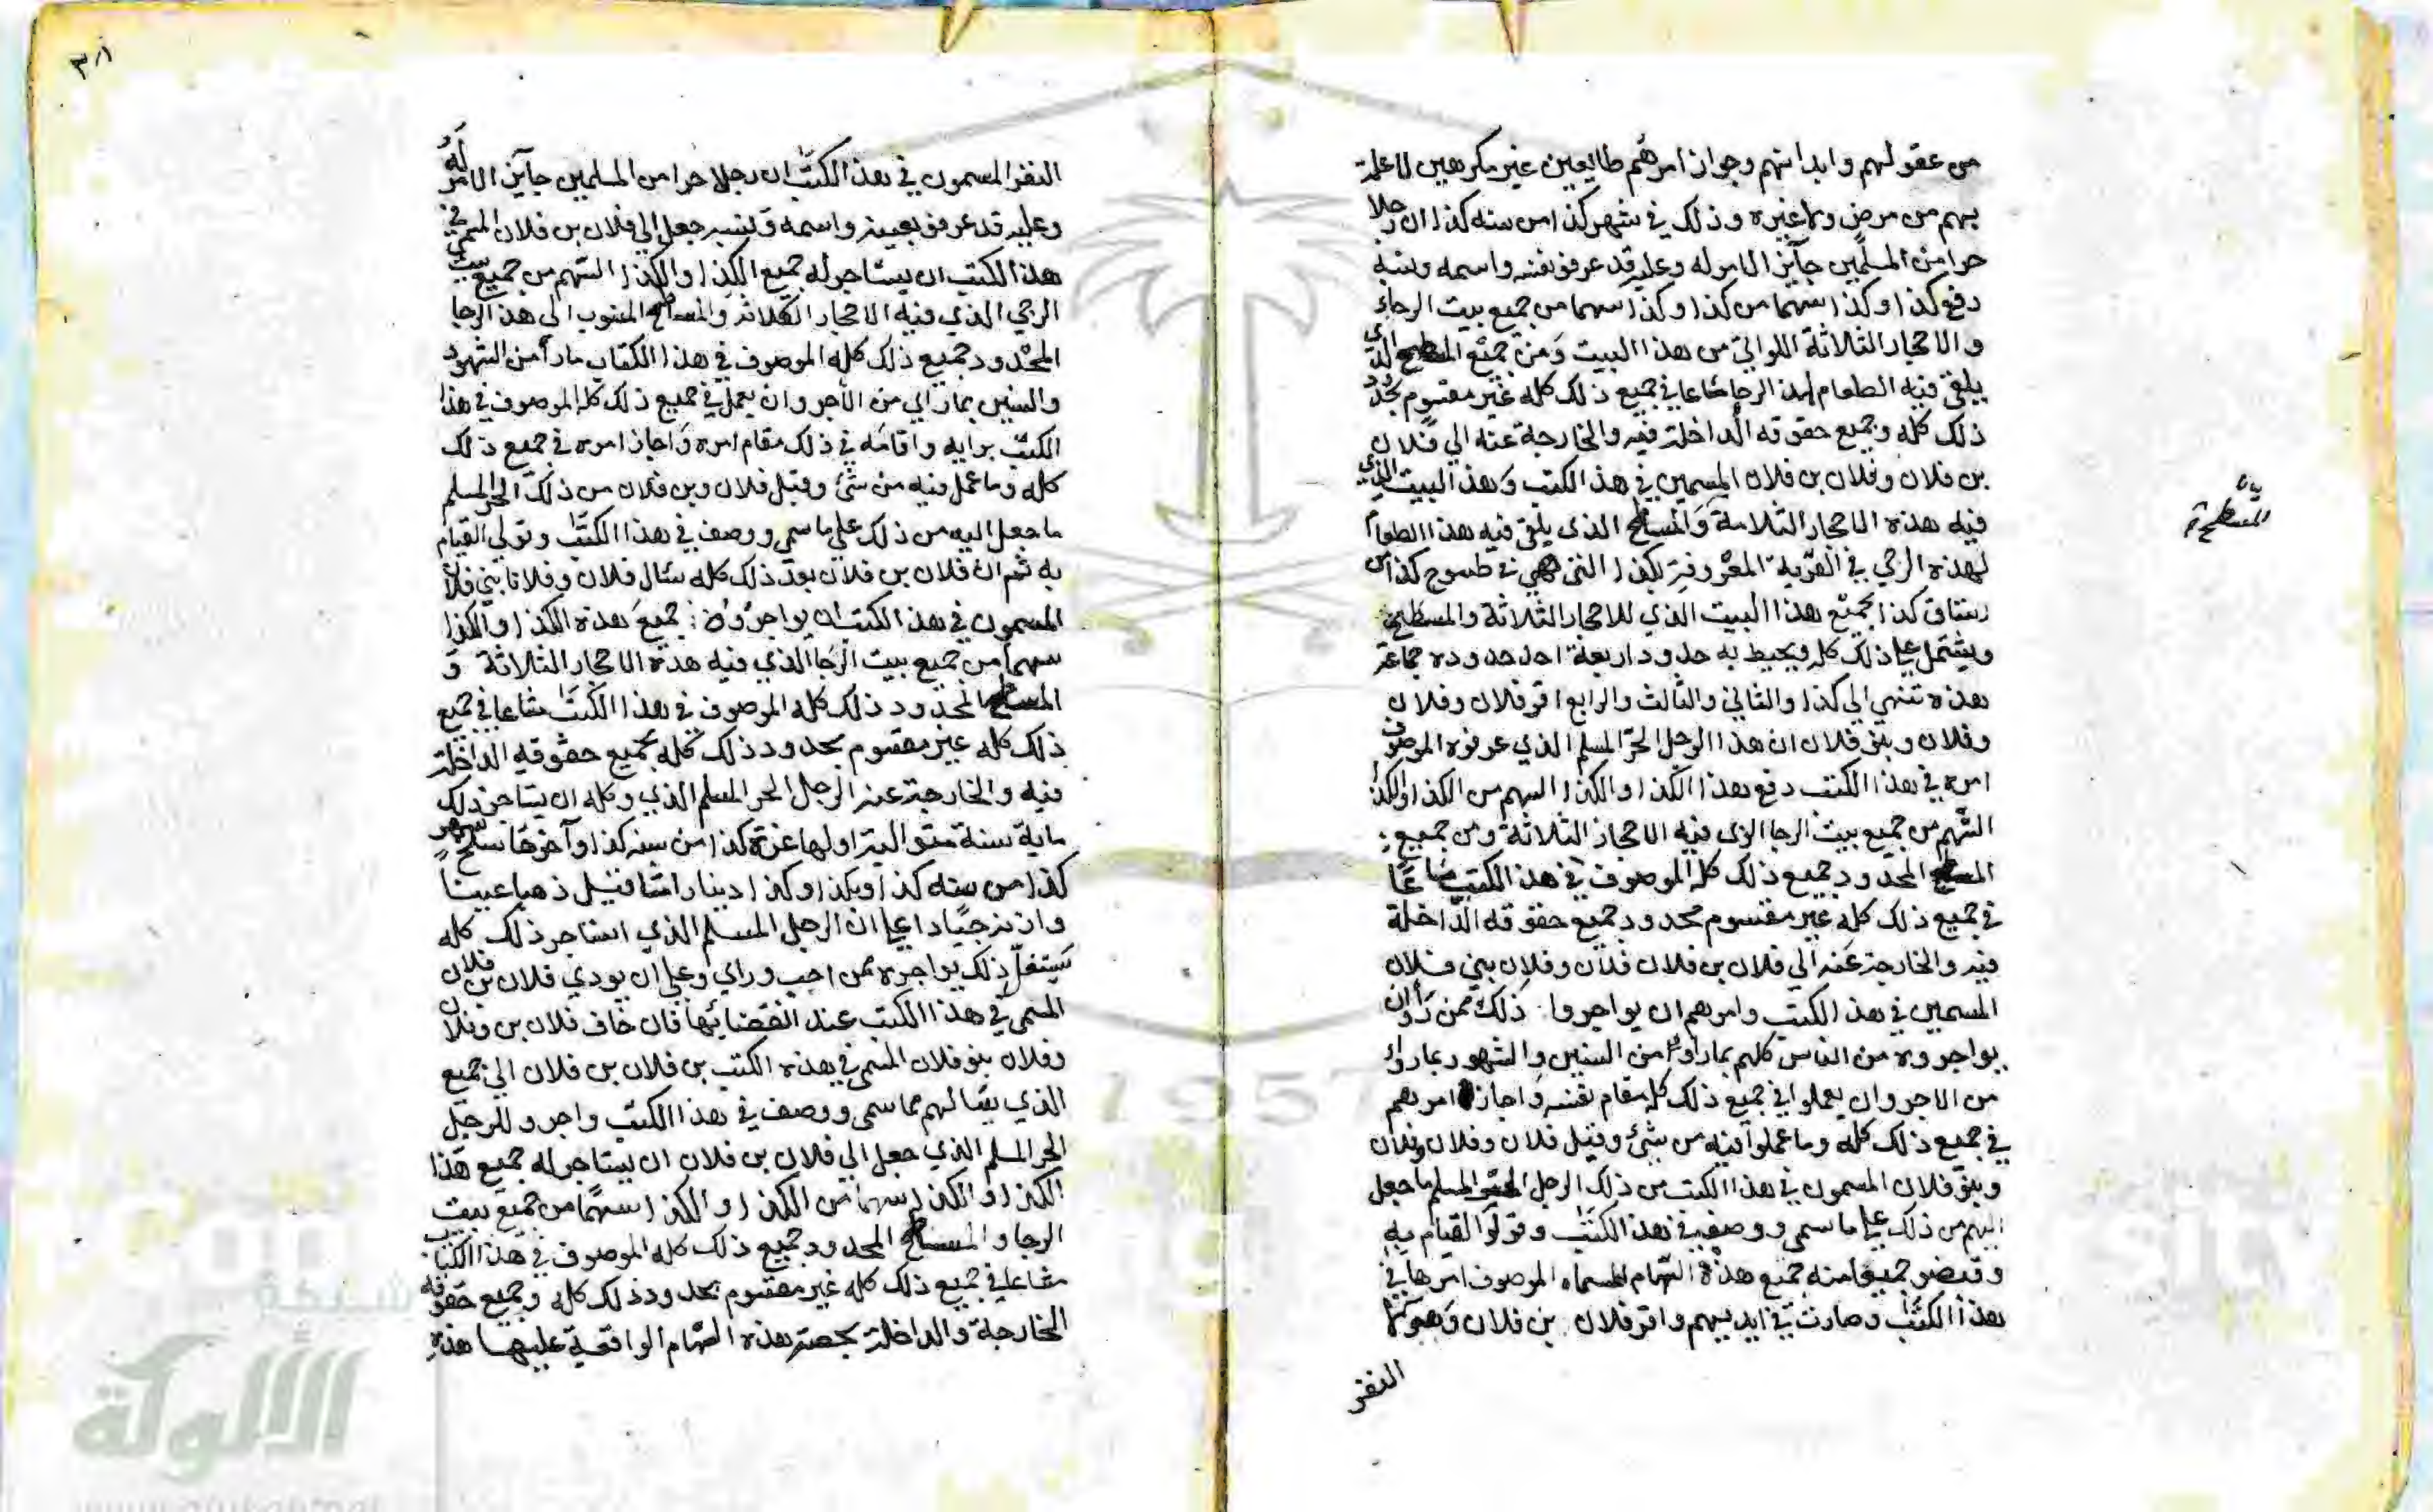 من عقولهم وابدانهم وجواز امرهم طايعين غير مكرهين لا علة
بهم من مرض ولا غيره وذلك في شهر كذا من سنه كذا ان رجلا
حرا من المسلمين جآيز الامر له وعليه قد عرفو بنفسه واسمه ونسبه
دفع كذا وكذا سهما من كذا وكذا سهما من جميع بيت الرحاء
والاحجار الثلاثة اللواتي من هذا البيت ومن جميع المسطح الذي
يلقى فيه الطعام لهذا الرحا مشاعا في جميع ذلك كله غير مقسوم بحدود
ذلك كله وجميع حقوقه الداخلة فيه والخارجة عنه الي فلان
بن فلان وفلان بن فلان المسمين في هذا الكتب وهذا البيت الذي
فيه هذه الاحجار الثلاثة والمسطح الذى يلقى فيه هذا الطعام
لهذه الرحي في القرية المعروفة بكذا التى هي في طسوج كذا من
رستاق كذا بجميع هذا البيت الذي للاحجار الثلاثة والمسطح
ويشتمل علي ذلك كله ويحيط به حدود اربعة احد حدوده جماعة
هذه تنتهي الي كذا والثاني والثالث والرابع اقر فلان وفلان
وفلان وبنو فلان ان هذا الرجل الحر المسلم الذي عرفوه الموصوف
امره في هذا الكتب دفع هذا الكذا والكذا السهم من الكذا والكذا
السهم من جميع بيت الرحا الذى فيه الاحجار الثلاثة ومن جميع
المسطح المحدود جميع ذلك كله الموصوف في هذا الكتب مشاعا
في جميع ذلك كله غير مقسوم محدود جميع حقوقه الداخلة
فيه والخارجة عنه الي فلان بن فلان فلان وفلان بني فلان
المسمين في هذا الكتب وامرهم ان يواجروا ذلك ممن رأوا ان
يواجروه من الناس كلهم بما راوا من السنين والشهور بما راوا
من الاجر وان يعملوا في جميع ذلك كله مقام نفسه واجاز امرهم
في جميع ذلك كله وما عملوا فيه من شئ وقبل فلان وفلان وفلان
وبنو فلان المسمون في هذا الكتب من ذلك الرجل الحر المسلم ما جعل
اليهم من ذلك علي ما سمي ووصف في هذا الكتب وتولوا القيام به
وقبضو جميعا منه جميع هذه السهام المسماه الموصوف امرها في
هذا الكتب وصارت في ايديهم واقر فلان بن فلان وهو
النفر
المسطح
٣٨
النفر المسمون في هذا الكتب ان رجلا حرا من المسلمين جآيز الامر له
وعليه قد عرفو بعينه واسمه ونسبه جعل الي فلان بن فلان المسمى في
هذا الكتب ان يستاجر له جميع الكذا والكذا السهم من جميع بيت
الرحي الذي فيه الاحجار الثلاثة والمسطح المنسوب الى هذا الرحا
المحدود جميع ذلك كله الموصوف في هذا الكتاب ما رأ من الشهود
والسنين بما راي من الاجر وان يعمل في جميع ذلك كله الموصوف في هذا
الكتب برايه واقامه في ذلك مقام امره واجاز امره في جميع ذلك
كله وما عمل فيه من شئ وقبل فلان وبن فلان من ذلك الحر المسلم
ما جعل اليه من ذلك على ما سمي ووصف في هذا الكتب وتولي القيام
به ثم ان فلان بن فلان بعد ذلك كله سال فلان وفلانا بني فلان
المسمون في هذا الكتب ان يواجروه جميع هذه الكذا والكذا
سهما من جميع بيت الرحا الذي فيه هذه الاحجار الثلاثة و
المسطح المحدود ذلك كله الموصوف في هذا الكتب مشاعا في جميع
ذلك كله غير مقسوم بحدود ذلك كله بجميع حقوقه الداخلة
فيه والخارجة عنه الرجل الحر المسلم الذي وكله ان يستاجر ذلك
ماية سنة متوالية اولها غرة كذا من سنه كذا وآخرها سلخ شهر
كذا من سنه كذا وبكذا وكذا دينارا مثاقيل ذهبا عينا
وازنة جيادا علي ان الرجل المسلم الذي استاجر ذلك كله
يستغل ذلك يواجره ممن احب وراي وعلي ان يودي فلان بن فلان
المسمى في هذا الكتب عند انقضائها فان خاف فلان بن وفلان
وفلان بنو فلان المسمى في هذه الكتب بن فلان بن فلان الي جميع
الذي يسالهم مما سمي ووصف في هذا الكتب واجرو للرجل
الحر المسلم الذي جعل الي فلان بن فلان ان يستاجر له جميع هذا
الكذا والكذا سهما من الكذا والكذا سهما من جميع بيت
الرحا والمسطح المحدود جميع ذلك كله الموصوف في هذا الكتاب
مشاعا في جميع ذلك كله غير مقسوم بحدود ذلك كله وجميع حقوقه
الخارجة والداخلة بحصته هذه السهام الواقعة عليها هذه
1957
شبكة
الألوكة